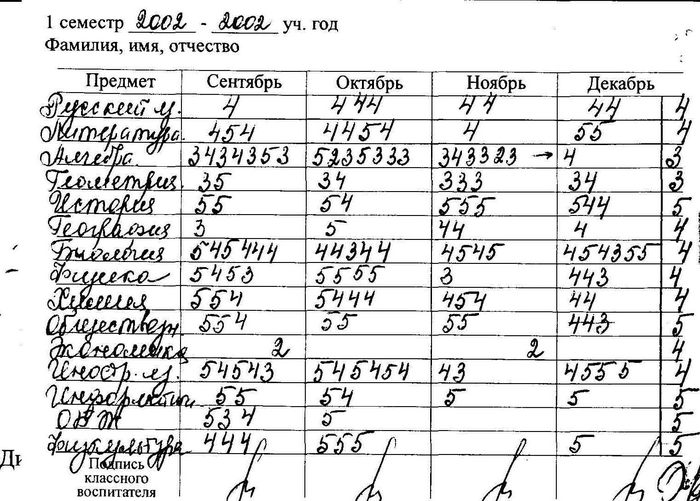 1 семестр 2002 - 2002 уч. год
Фамилия, имя, отчество
Предмет Сентябрь Октябрь Ноябрь Декабрь
Русский яз. 4 444 44 44 4
Литература 454 4454 4 55 4
Алгебра 3434353 5235333 343323 → 4 3
Геометрия 35 34 333 34 3
История 55 54 555 544 5
География 3 5 44 4 4
Биология 545444 44344 4545 454355 4
Физика 5453 5555 3 443 4
Химия 554 5444 454 44 4
Обществозн. 554 55 55 443 5
Экономика 2 2 4
Иностр. яз. 54543 545454 43 4555 4
Информатики 55 54 5 5 5
ОБЖ 534 5 5
Физкультура 444 555 5 5
Подпись
классного
воспитателя